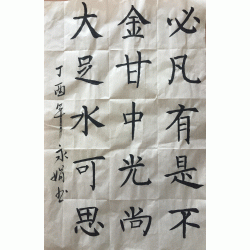 必凡有是不
金甘中光尚
大足水可思
丁酉年永娟书